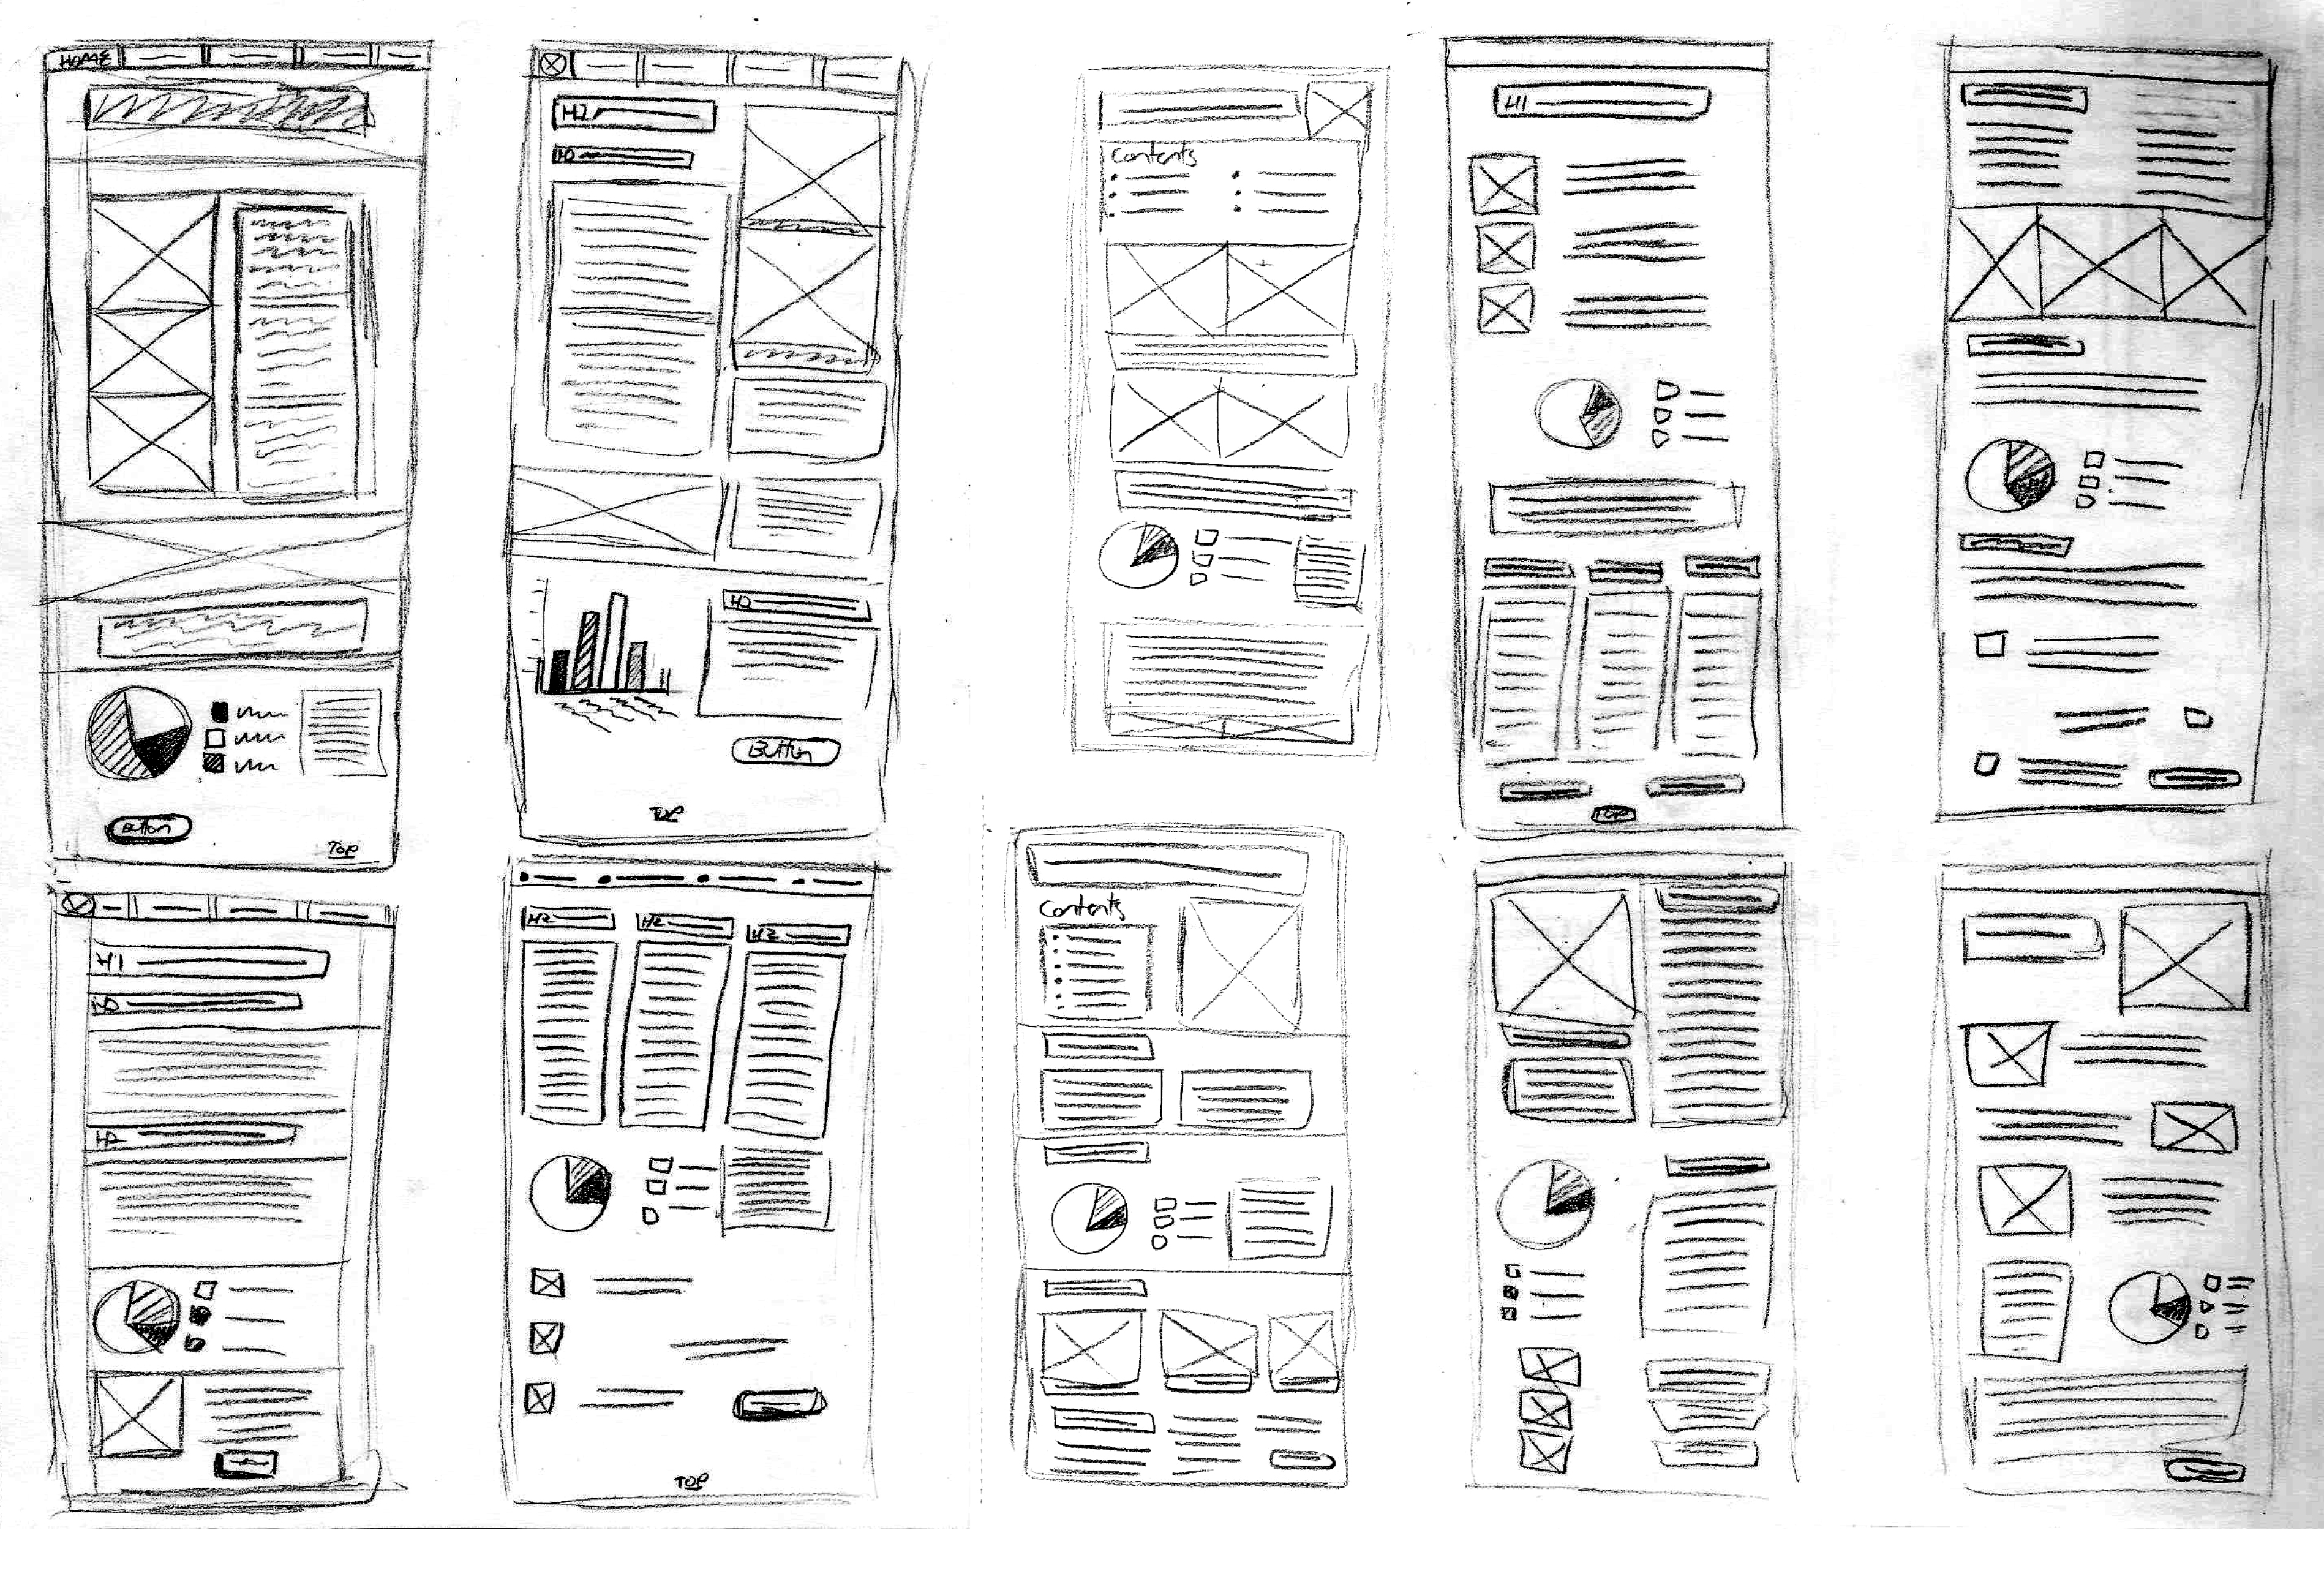 HOME
Button
TOP
H2
H2
Button
TOP
Contents
H1
TOP
H1
H2
H2
H2
H2
TOP
Contents